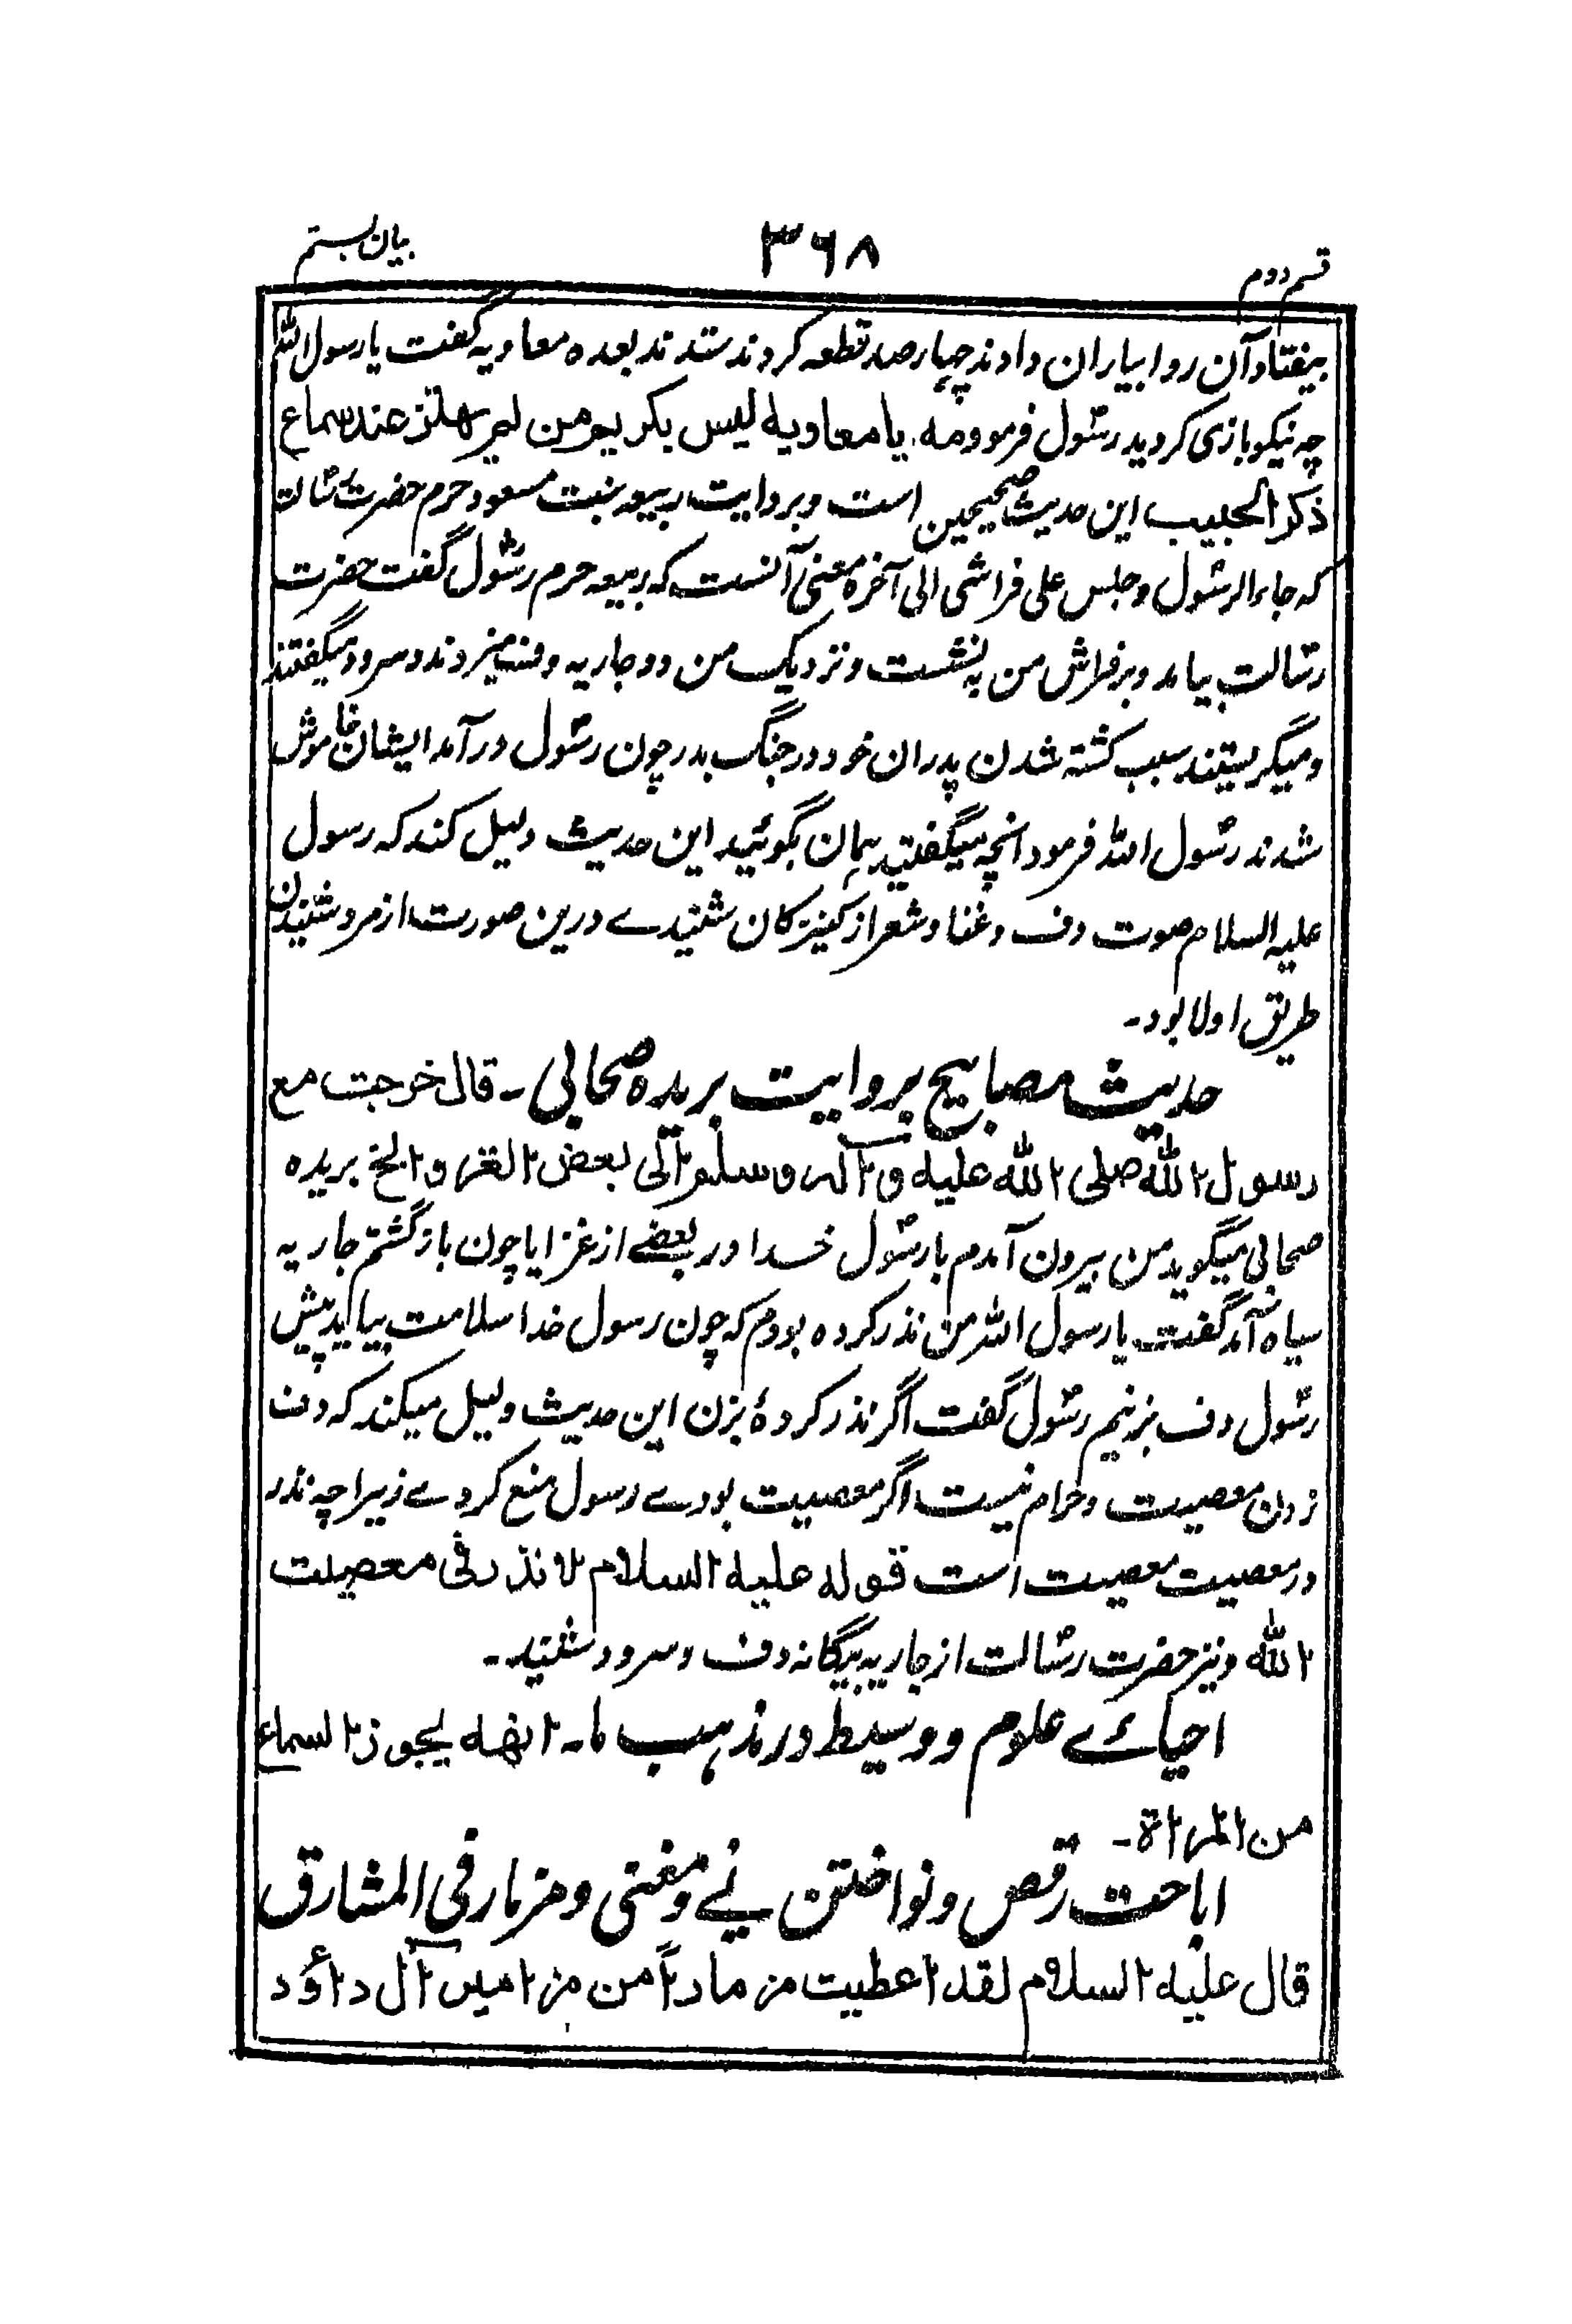 قسم دوم
۳۶۸
بیان بستم
بیفتاد آن ردا بیاران دادند چہار صد قطعہ کردند ستدند بعدہ معاویہ گفت یا رسول اللہ
چہ نیکو بازی کردید رسول فرمود مہ یا معاویہ لیس بکریم من لم یھتز عند سماع
ذکر الحبیب این حدیث صحیحین است و بروایت ربیعہ بنت مسعود حرم حضرت رسالت
کہ جاء الرسول وجلس علی فراشی الی آخرہ معنی آنست کہ ربیعہ حرم رسول گفت حضرت
رسالت بیامد و بر فراش من بہ نشست و نزدیک من دو جاریہ دف میزدند و سرود میگفتند
و میگریستند سبب کشتہ شدن پدران خود در جنگ بدر چون رسول درآمد ایشان خاموش
شدند رسول اللہ فرمود انچہ میگفتید ہمان بگوئید این حدیث دلیل کند کہ رسول
علیہ السلام صوت دف و غنا و شعر از کنیزکان شنیدے درین صورت از مرد شنیدن
طریق اولا بود۔
حدیث مصابیح بروایت بریدہ صحابی ۔ قال خرجت مع
رسول اللہ صلی اللہ علیہ و آلہ وسلم الی بعض الغزو الخ بریدہ
صحابی میگوید من بیرون آمدم با رسول خدا در بعضے از غزایا چون بازگشتم جاریہ
سیاہ آمد گفت یا رسول اللہ من نذر کردہ بودم کہ چون رسول خدا سلامت بیاید پیش
رسول دف بزنیم رسول گفت اگر نذر کردۂ بزن این حدیث دلیل میکند کہ دف
زدن معصیت و حرام نیست اگر معصیت بودے رسول منع کردے زیراچہ نذر
در معصیت معصیت است قولہ علیہ السلام لا نذر فی معصیت
اللہ و نیز حضرت رسالت از جاریہ بیگانہ دف و سرود شنید۔
احیائے علوم و وسیط در مذہب ما۔ انہ یجوز السماع
من المراۃ۔
اباحت رقص و نواختن نے و مغنی و مزمار فی المشارق
قال علیہ السلام لقد اعطیت مزماراً من مزامیر آل داؤد